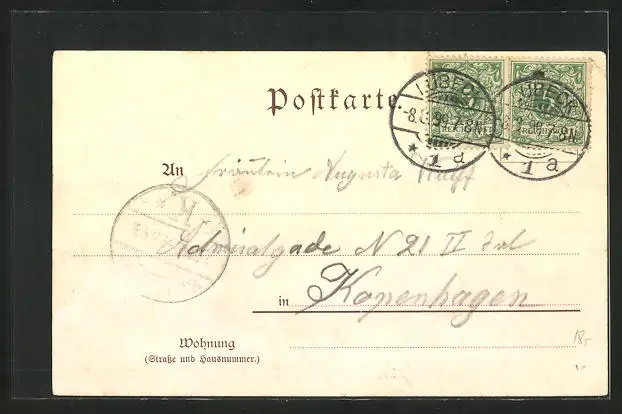 Postkarte.
LÜBECK
-8.8.99.7-8N
* 1 a
LÜBECK
8.8.99.7-8N
* 1 a
REICHSPOST
REICHSPOST
An Fräulein Augusta
Admiralgade N 21 II
in Kopenhagen
Wohnung
(Straße und Hausnummer.)
18,-